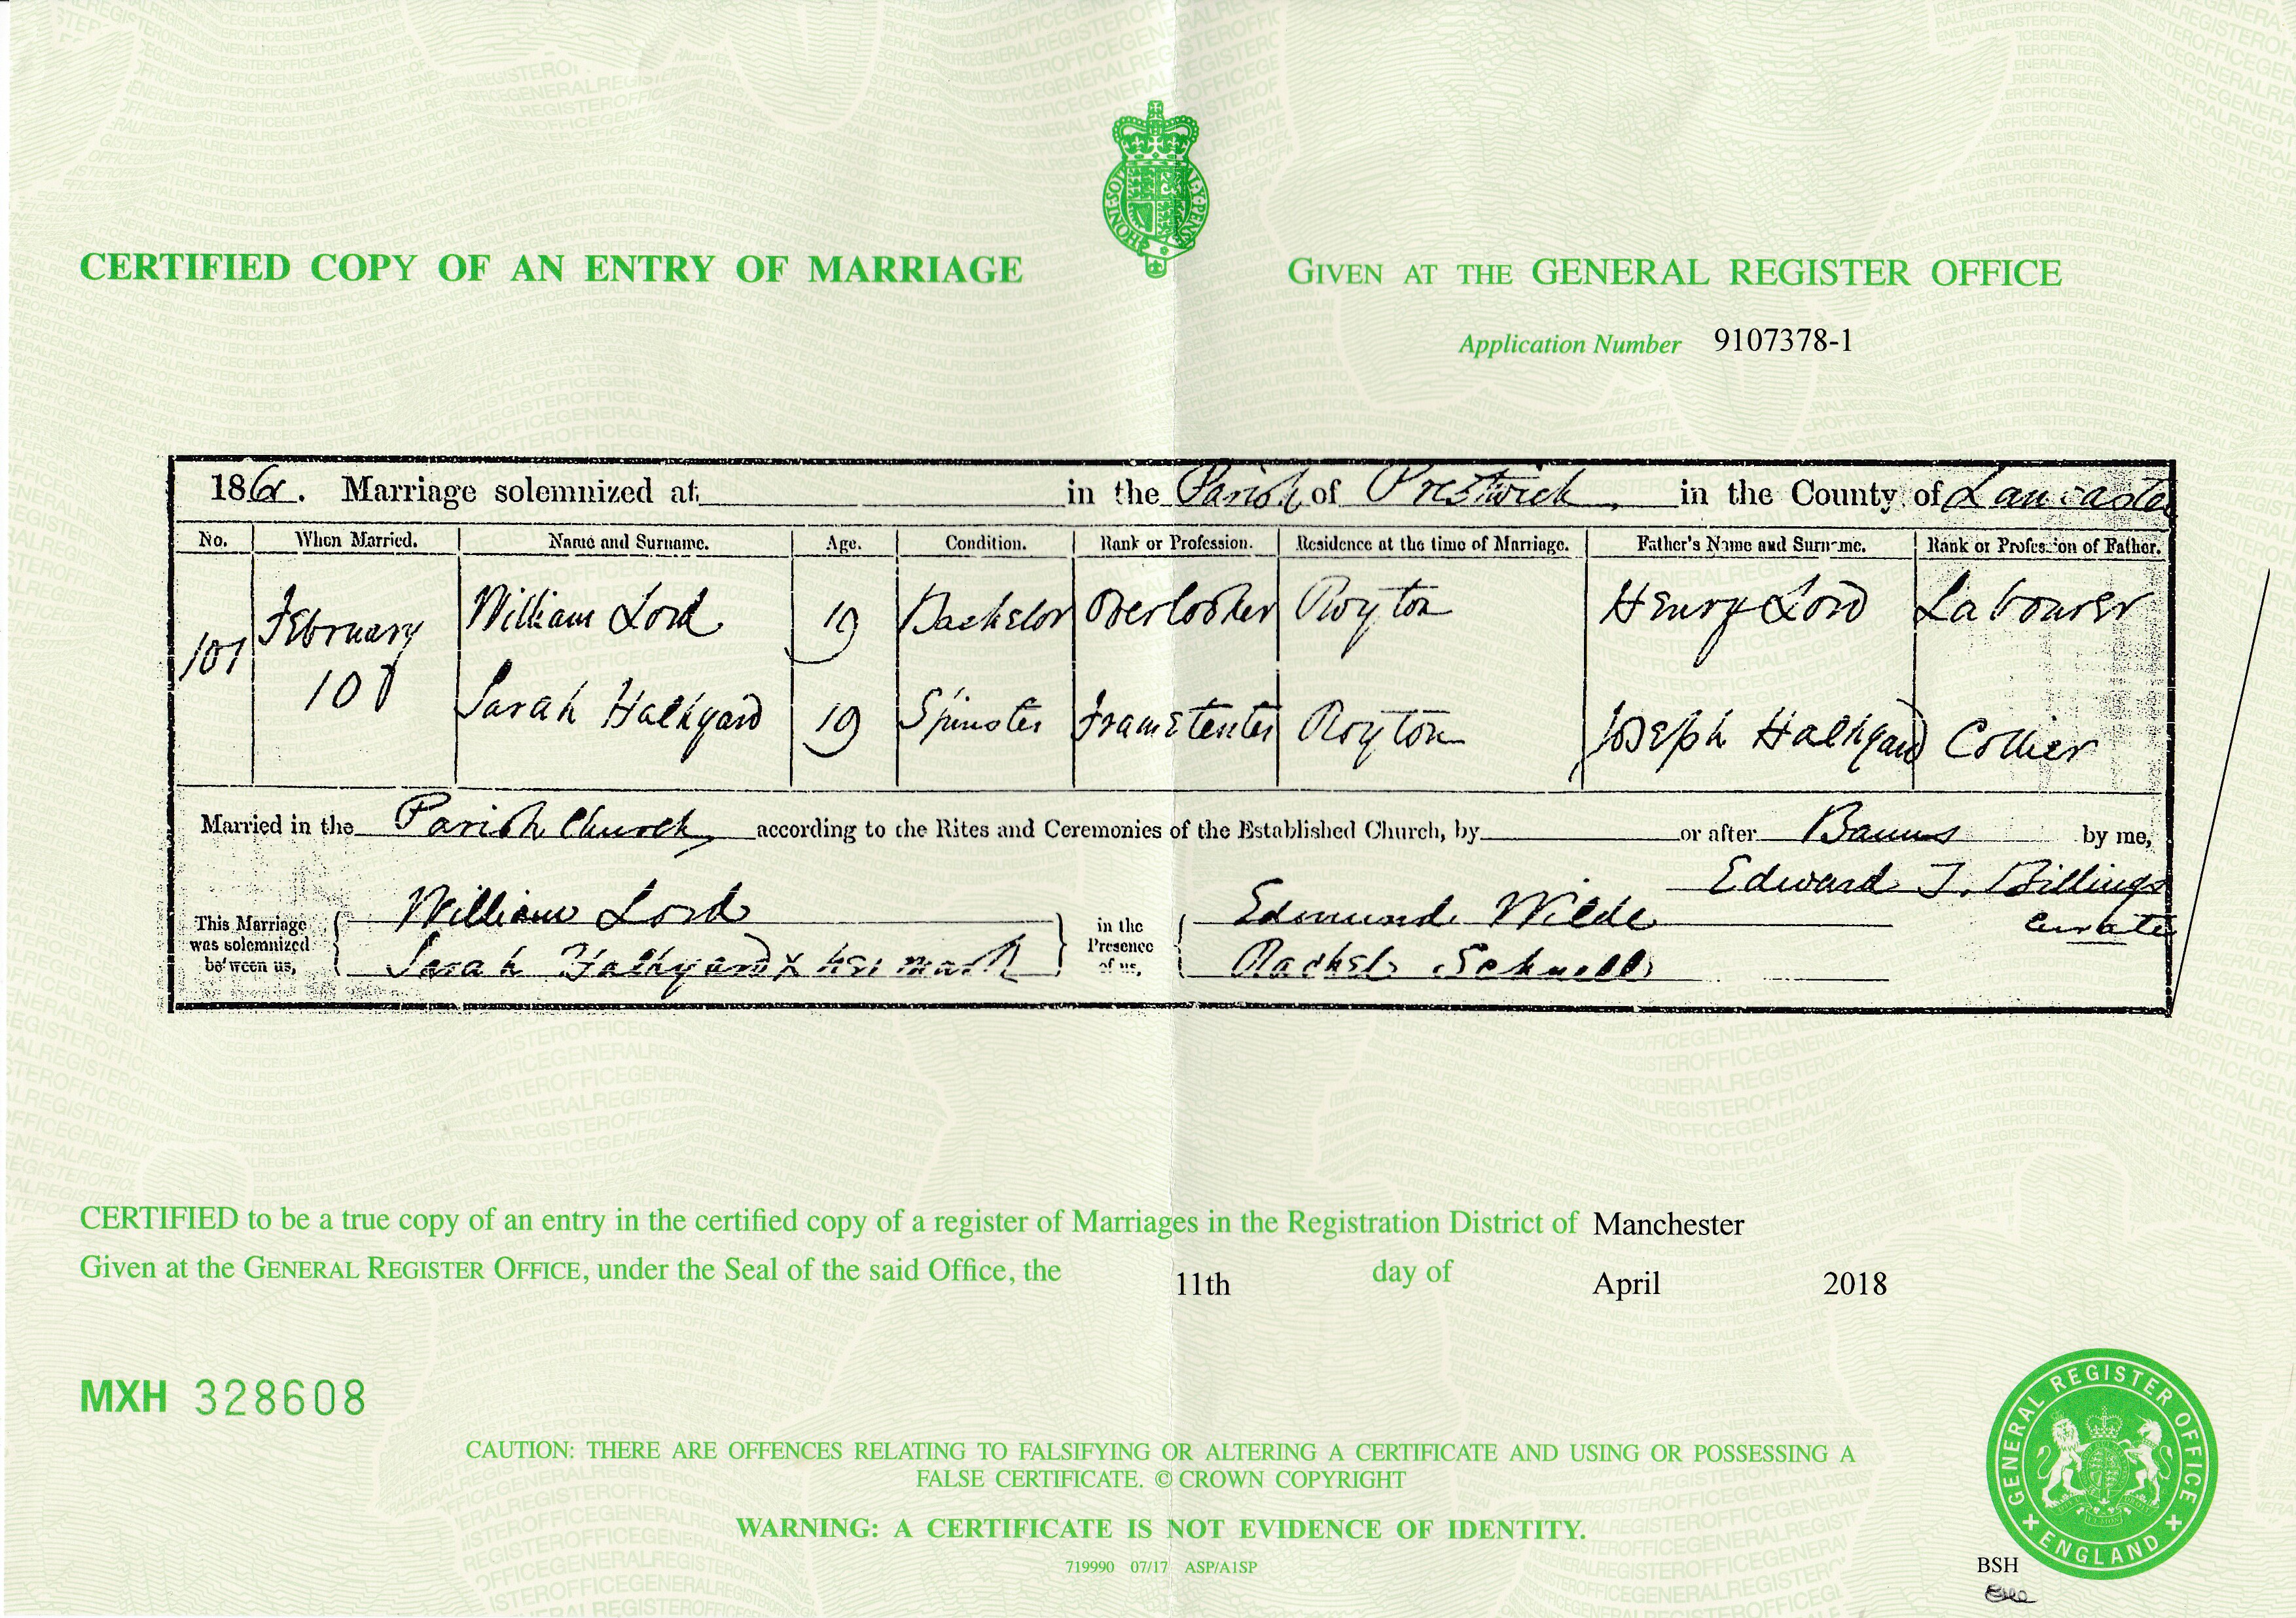 HONI·SOI AL·Y·PENS
CERTIFIED COPY OF AN ENTRY OF MARRIAGE
GIVEN AT THE GENERAL REGISTER OFFICE
Application Number 9107378-1
1861. Marriage solemnized at in the Parish of Prestwich in the County of Lancaster
No. When Married. Name and Surname. Age. Condition. Rank or Profession. Residence at the time of Marriage. Father's Name and Surname. Rank or Profession of Father.
February William Lord 19 Bachelor Overlooker Royton Henry Lord Labourer
107
10 Sarah Halkyard 19 Spinster Frametenter Royton Joseph Halkyard Collier
Married in the Parish Church, according to the Rites and Ceremonies of the Established Church, by or after Banns by me,
Edward J. Billings
Curate
This Marriage was solemnized between us, William Lord
Sarah Halkyard X her mark
in the Presence of us, Edmund Wilde
Rachel Schnell
CERTIFIED to be a true copy of an entry in the certified copy of a register of Marriages in the Registration District of Manchester
Given at the GENERAL REGISTER OFFICE, under the Seal of the said Office, the 11th day of April 2018
MXH 328608
CAUTION: THERE ARE OFFENCES RELATING TO FALSIFYING OR ALTERING A CERTIFICATE AND USING OR POSSESSING A
FALSE CERTIFICATE. © CROWN COPYRIGHT
WARNING: A CERTIFICATE IS NOT EVIDENCE OF IDENTITY.
719990 07/17 ASP/A1SP
GENERAL REGISTER OFFICE
ENGLAND
BSH